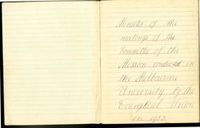 Minutes of the
meetings of the
Committee of the
Mission conducted in
the Melbourne
University by the
Evangelical Union
in 1933